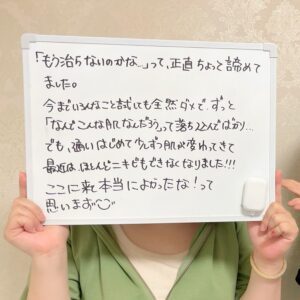 「もう治らないのかな…」って、正直ちょっと諦めて
ました。
今までいろんなこと試しても全然ダメで、ずっと
「なんでこんな肌なんだろう」って落ち込んでばかり…
でも、通いはじめて少しずつ肌が変わってきて
最近は、ほとんどニキビもできなくなりました!!!
ここに来れて本当によかったな!って
思います